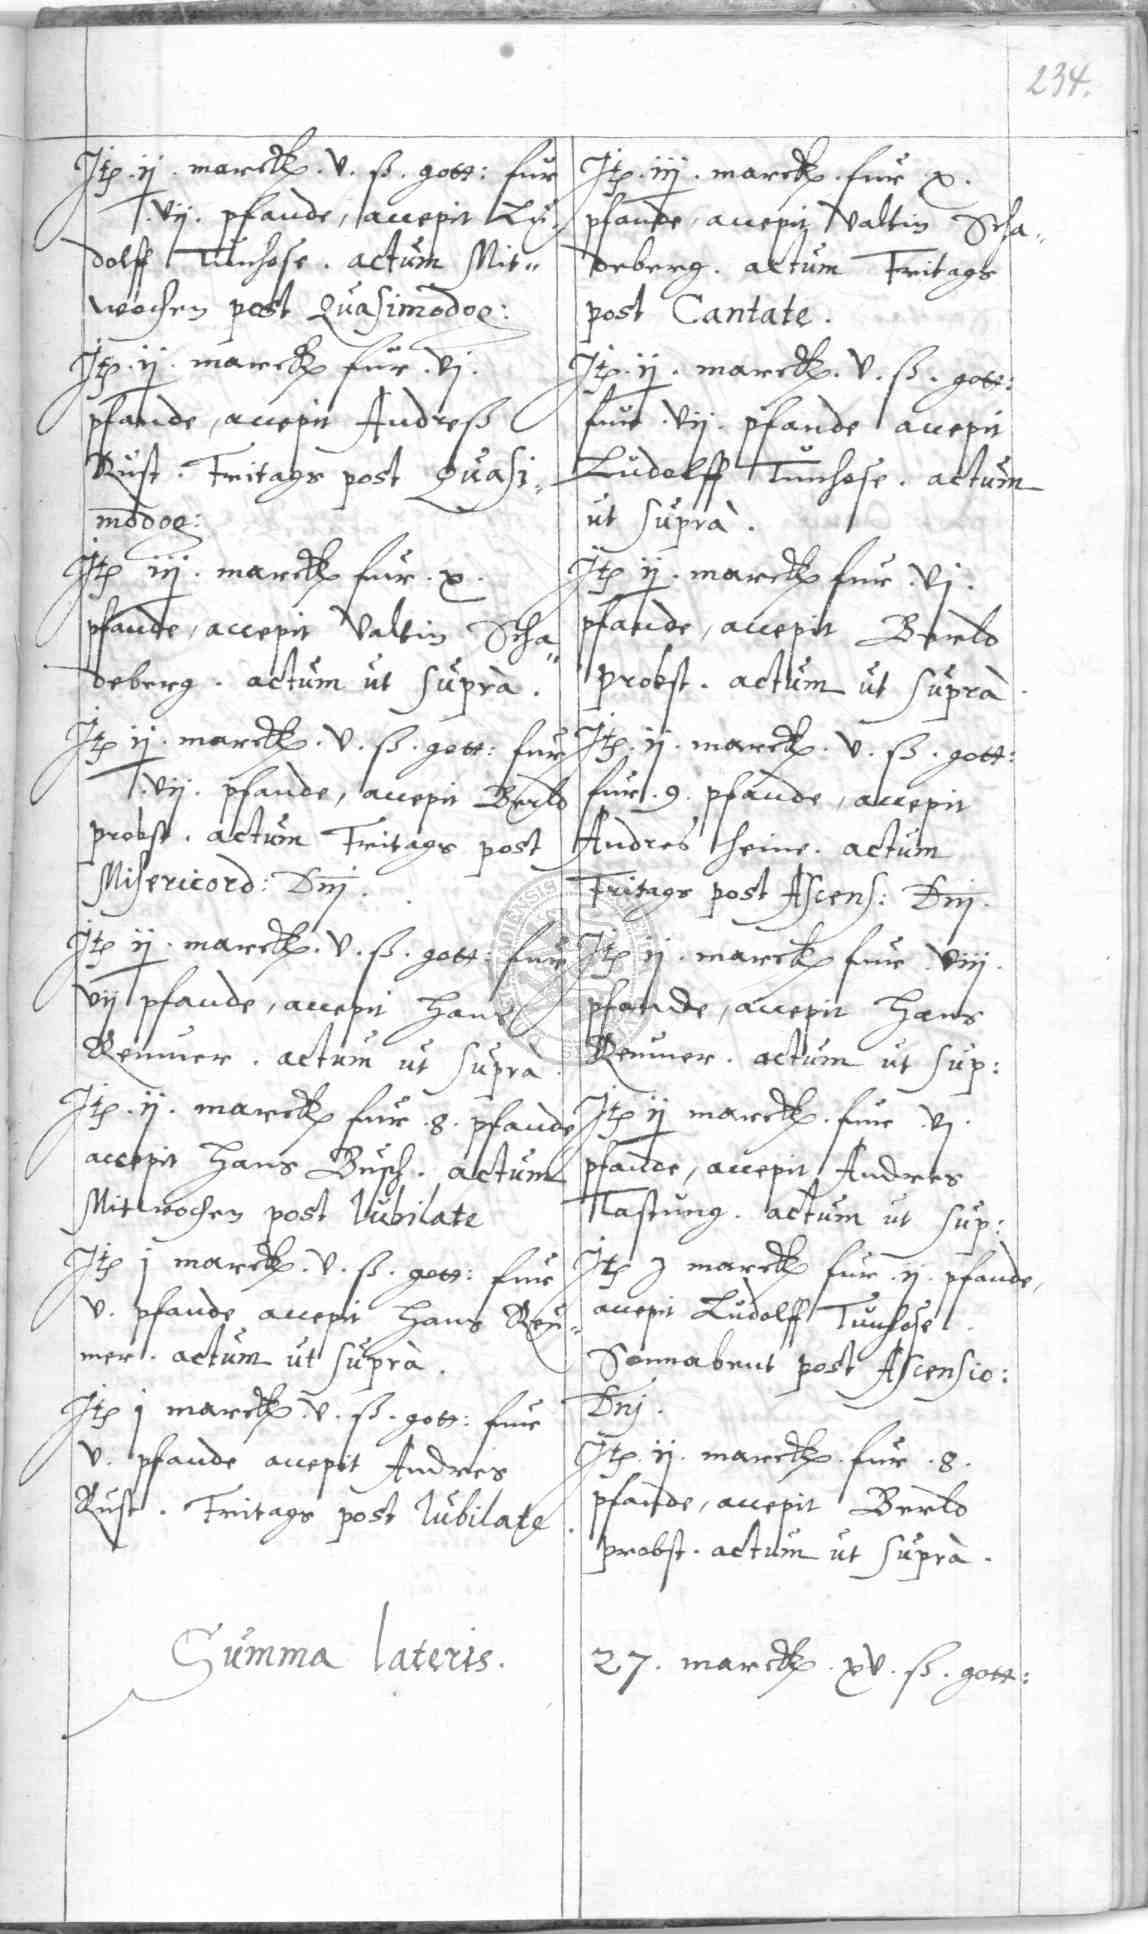 234.
Itp. ij. marck. v. ß. gott: fur
.vij. pfande, accepit Lu„
dolff Tunhose. actum Mit„
wochen post Quasimodog:
Itp. ij. marck fur .vj.
pfande, accepit Andreß
Rust. Fritags post Quasi„
modog:
Itp iij. marck fur. x.
pfande, accepit Valtin Scha„
deberg. actum ut suprà.
Itp ij. marck. v. ß. gott: fur
.vij. pfande, accepit Berld
probst. actum Fritags post
Misericord: Dnj.
Itp ij. marck. v. ß. gott: fur
vij pfande, accepit Hans
Remmer. actum ut suprà.
Itp. ij. marck fur .8. pfande
accepit Hans Busch. actum
Mitwochen post Iubilate
Itp j marck. v. ß. gott: fur
v. pfande accepit Hans Rem„
mer. actum ut suprà.
Itp j marck. v. ß. gott: fur
v. pfande accepit Andres
Rust. Fritags post Iubilate.
Summa lateris.
Itp. iij. marck. fur x.
pfande, accepit Valtin Scha„
deberg. actum Fritags
post Cantate.
Itp. ij. marck. v. ß. gott:
fur .vij. pfande accepit
Ludolff Tunhose. actum
ut suprà.
Itp ij. marck fur .vj.
pfande, accepit Berld
probst. actum ut suprà.
Itp. ij. marck. v. ß. gott:
fur .9. pfande, accepit
Andres heine. actum
Fritags post Ascens: Dnj.
Itp ij. marck fur viij.
pfande, accepit Hans
Remmer. actum ut sup:
Itp ij marck. fur .vj.
pfande, accepit Andres
Nastung. actum ut sup:
Itp j marck fur .ij. pfande,
accepit Ludolff Tunhose.
Sonnabent post Ascensio:
Dnj.
Itp. ij. marck. fur .8.
pfande, accepit Berld
probst. actum ut suprà.
27. marck. xv. ß. gott: